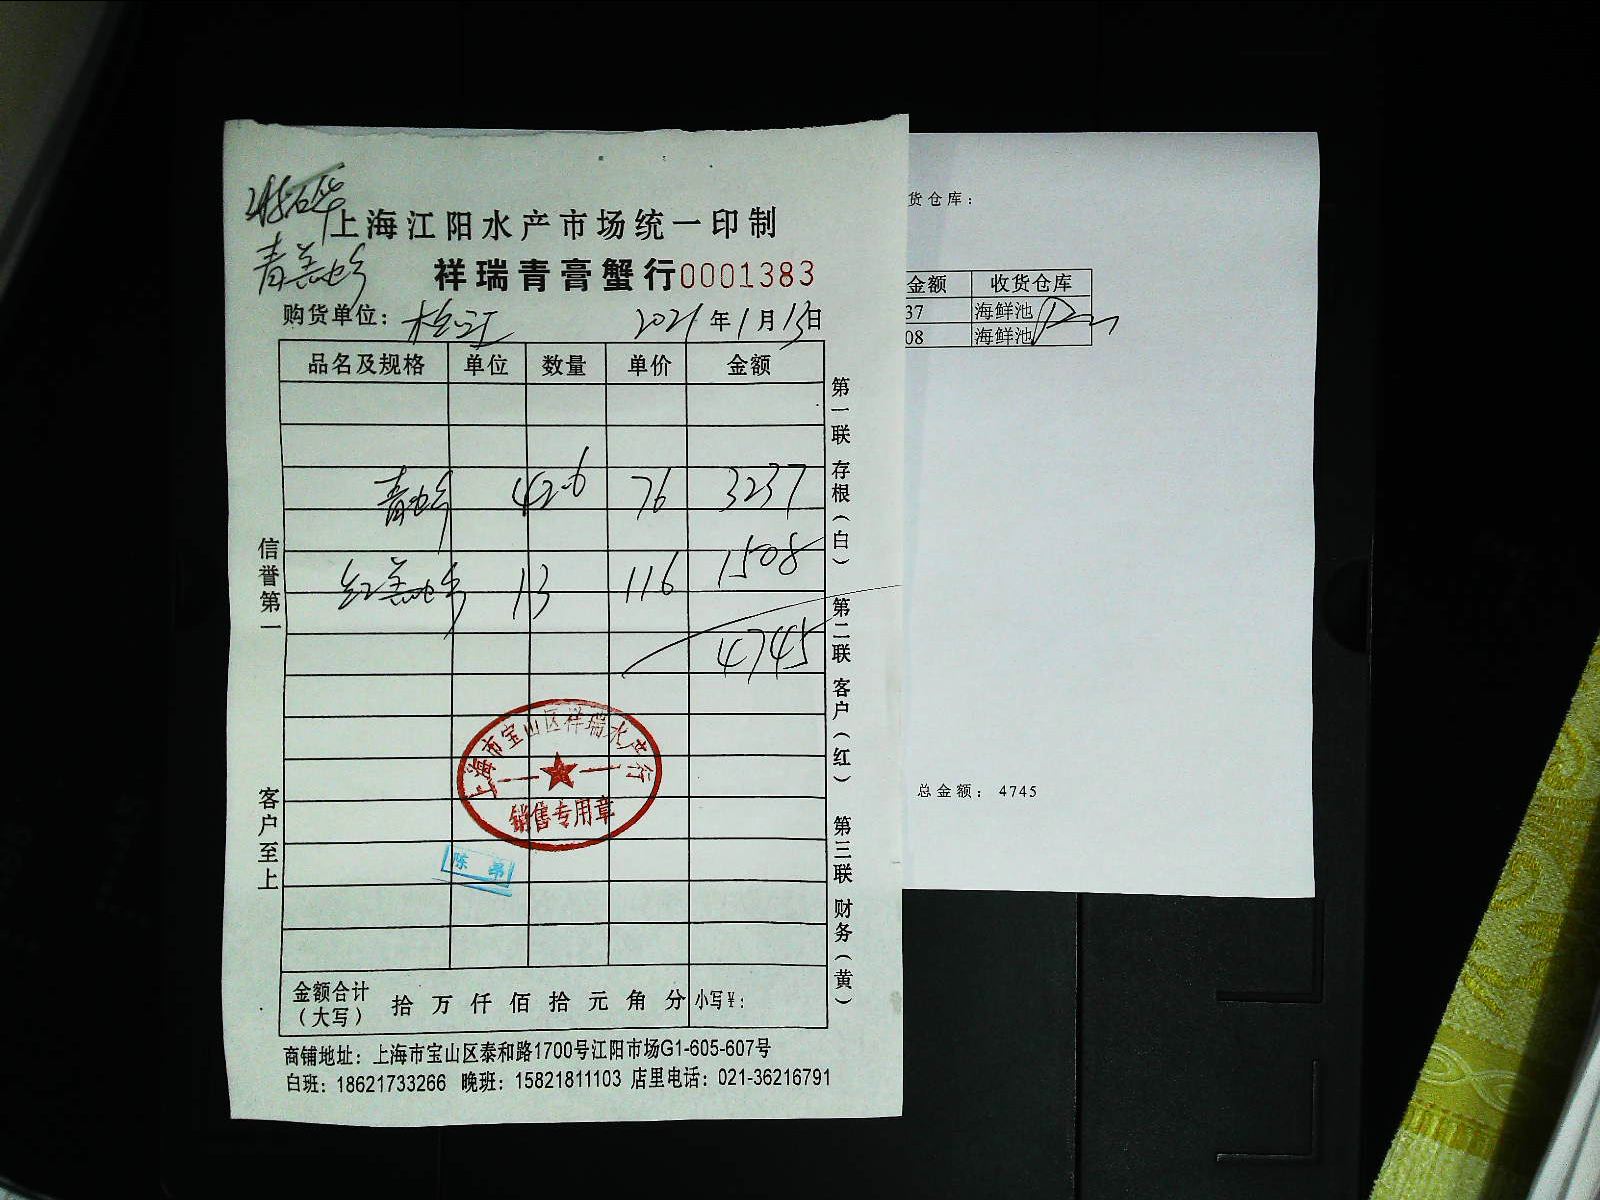 上海江阳水产市场统一印制
祥瑞青膏蟹行 0001383
购货单位： 松江 2021年1月13日
品名及规格 单位 数量 单价 金额
42.6 76 3237
13 116 1508
4745
信誉第一
客户至上
第一联 存根（白） 第二联 客户（红） 第三联 财务（黄）
上海市宝山区祥瑞水产行
销售专用章
金额合计（大写） 拾 万 仟 佰 拾 元 角 分 小写￥：
商铺地址：上海市宝山区泰和路1700号江阳市场G1-605-607号
白班：18621733266 晚班：15821811103 店里电话：021-36216791
货仓库：
金额 收货仓库
37 海鲜池
08 海鲜池
总金额： 4745